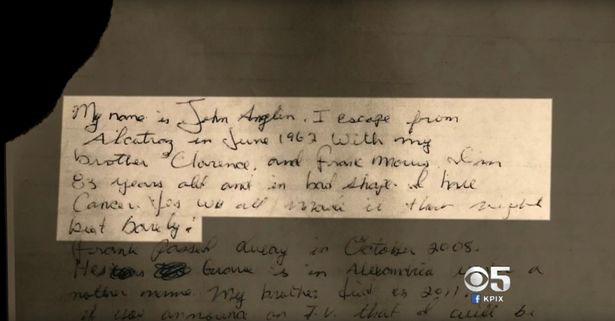 My name is John Anglin. I escape from
Alcatraz in June 1962 With my
brother Clarence, and Frank Morris. I'm
83 years old and in bad shape. I have
Cancer. Yes we all made it that night
but barely!
Frank passed away in October 2008.
Grave is in Alexandria a
nother name. My brother died 2011.
if you announce on T.V. that I will be
5
f KPIX